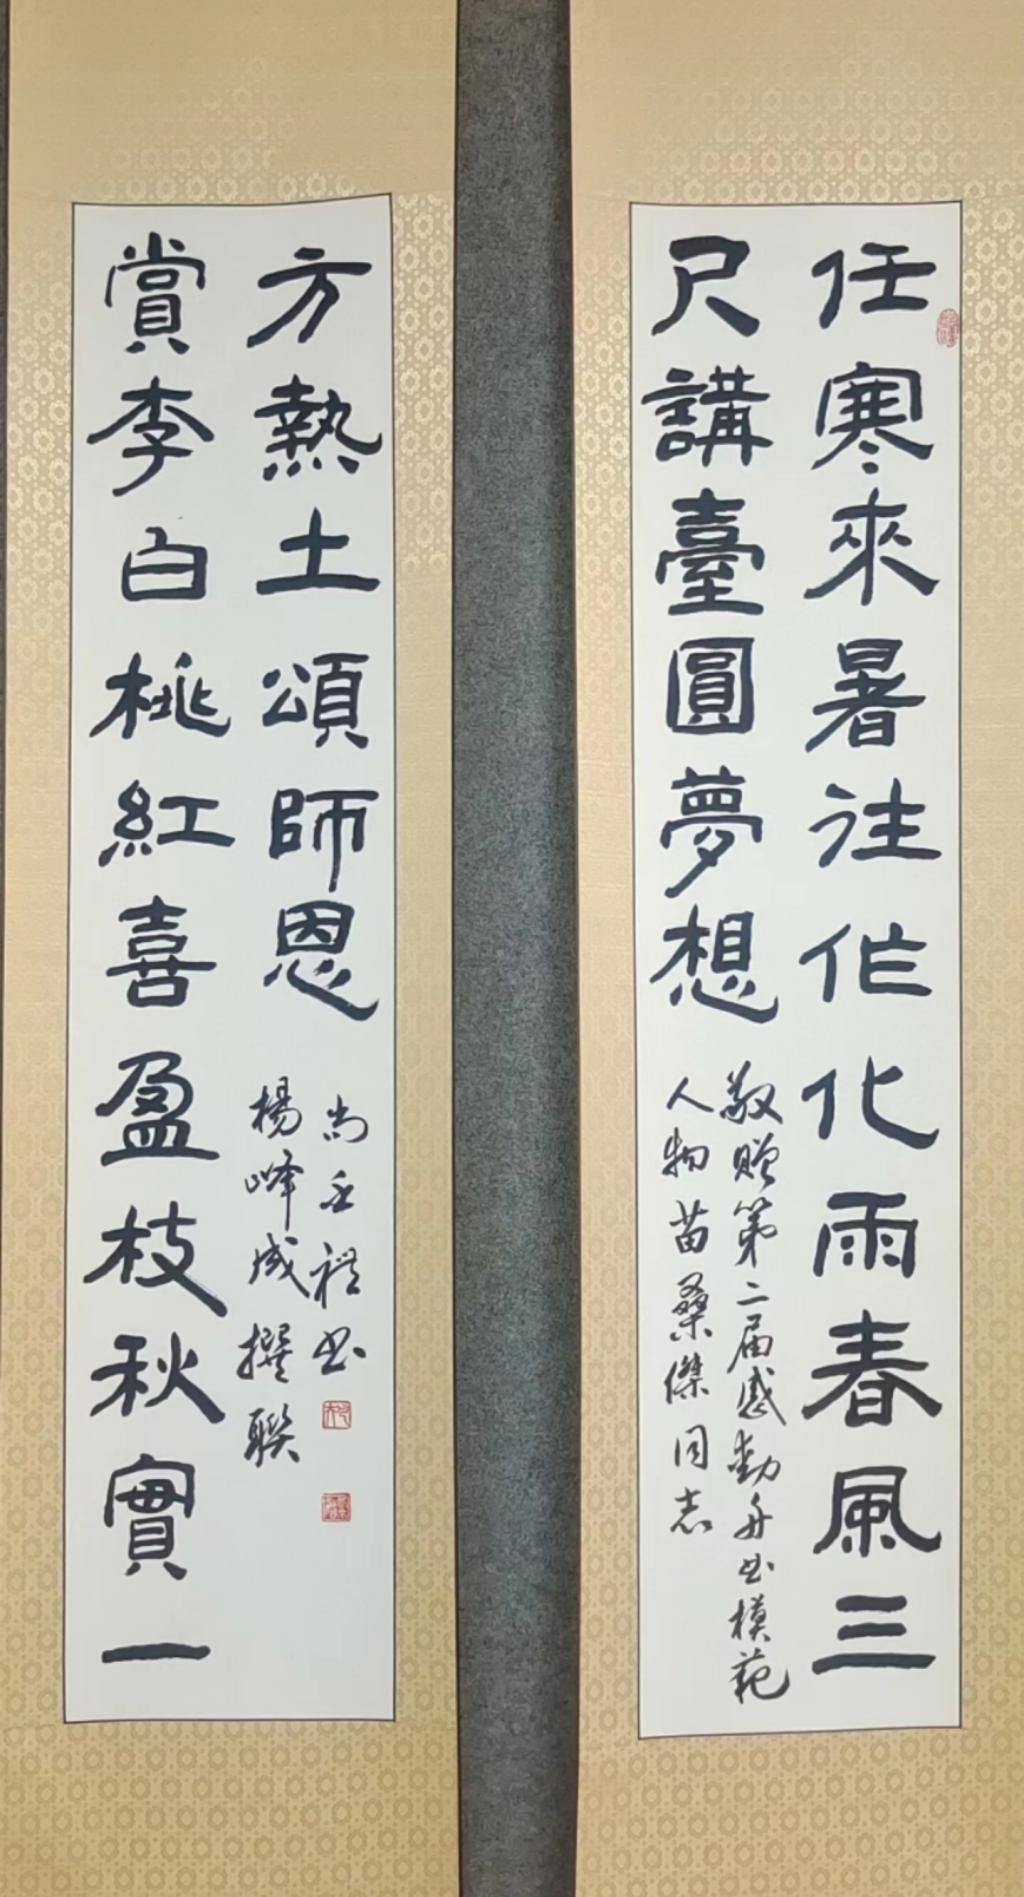 任寒來暑往作化雨春風三
尺講臺圓夢想
敬贈第二届感動舟曲模範
人物苗桑傑同志
賞李白桃紅喜盈枝秋實一
方熱土頌師恩
楊峰成撰聯
尚 禮书